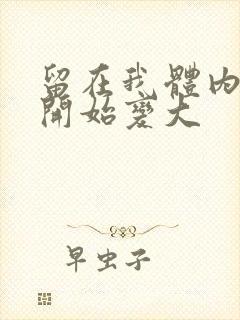 留在我體內
開始變大
早虫子